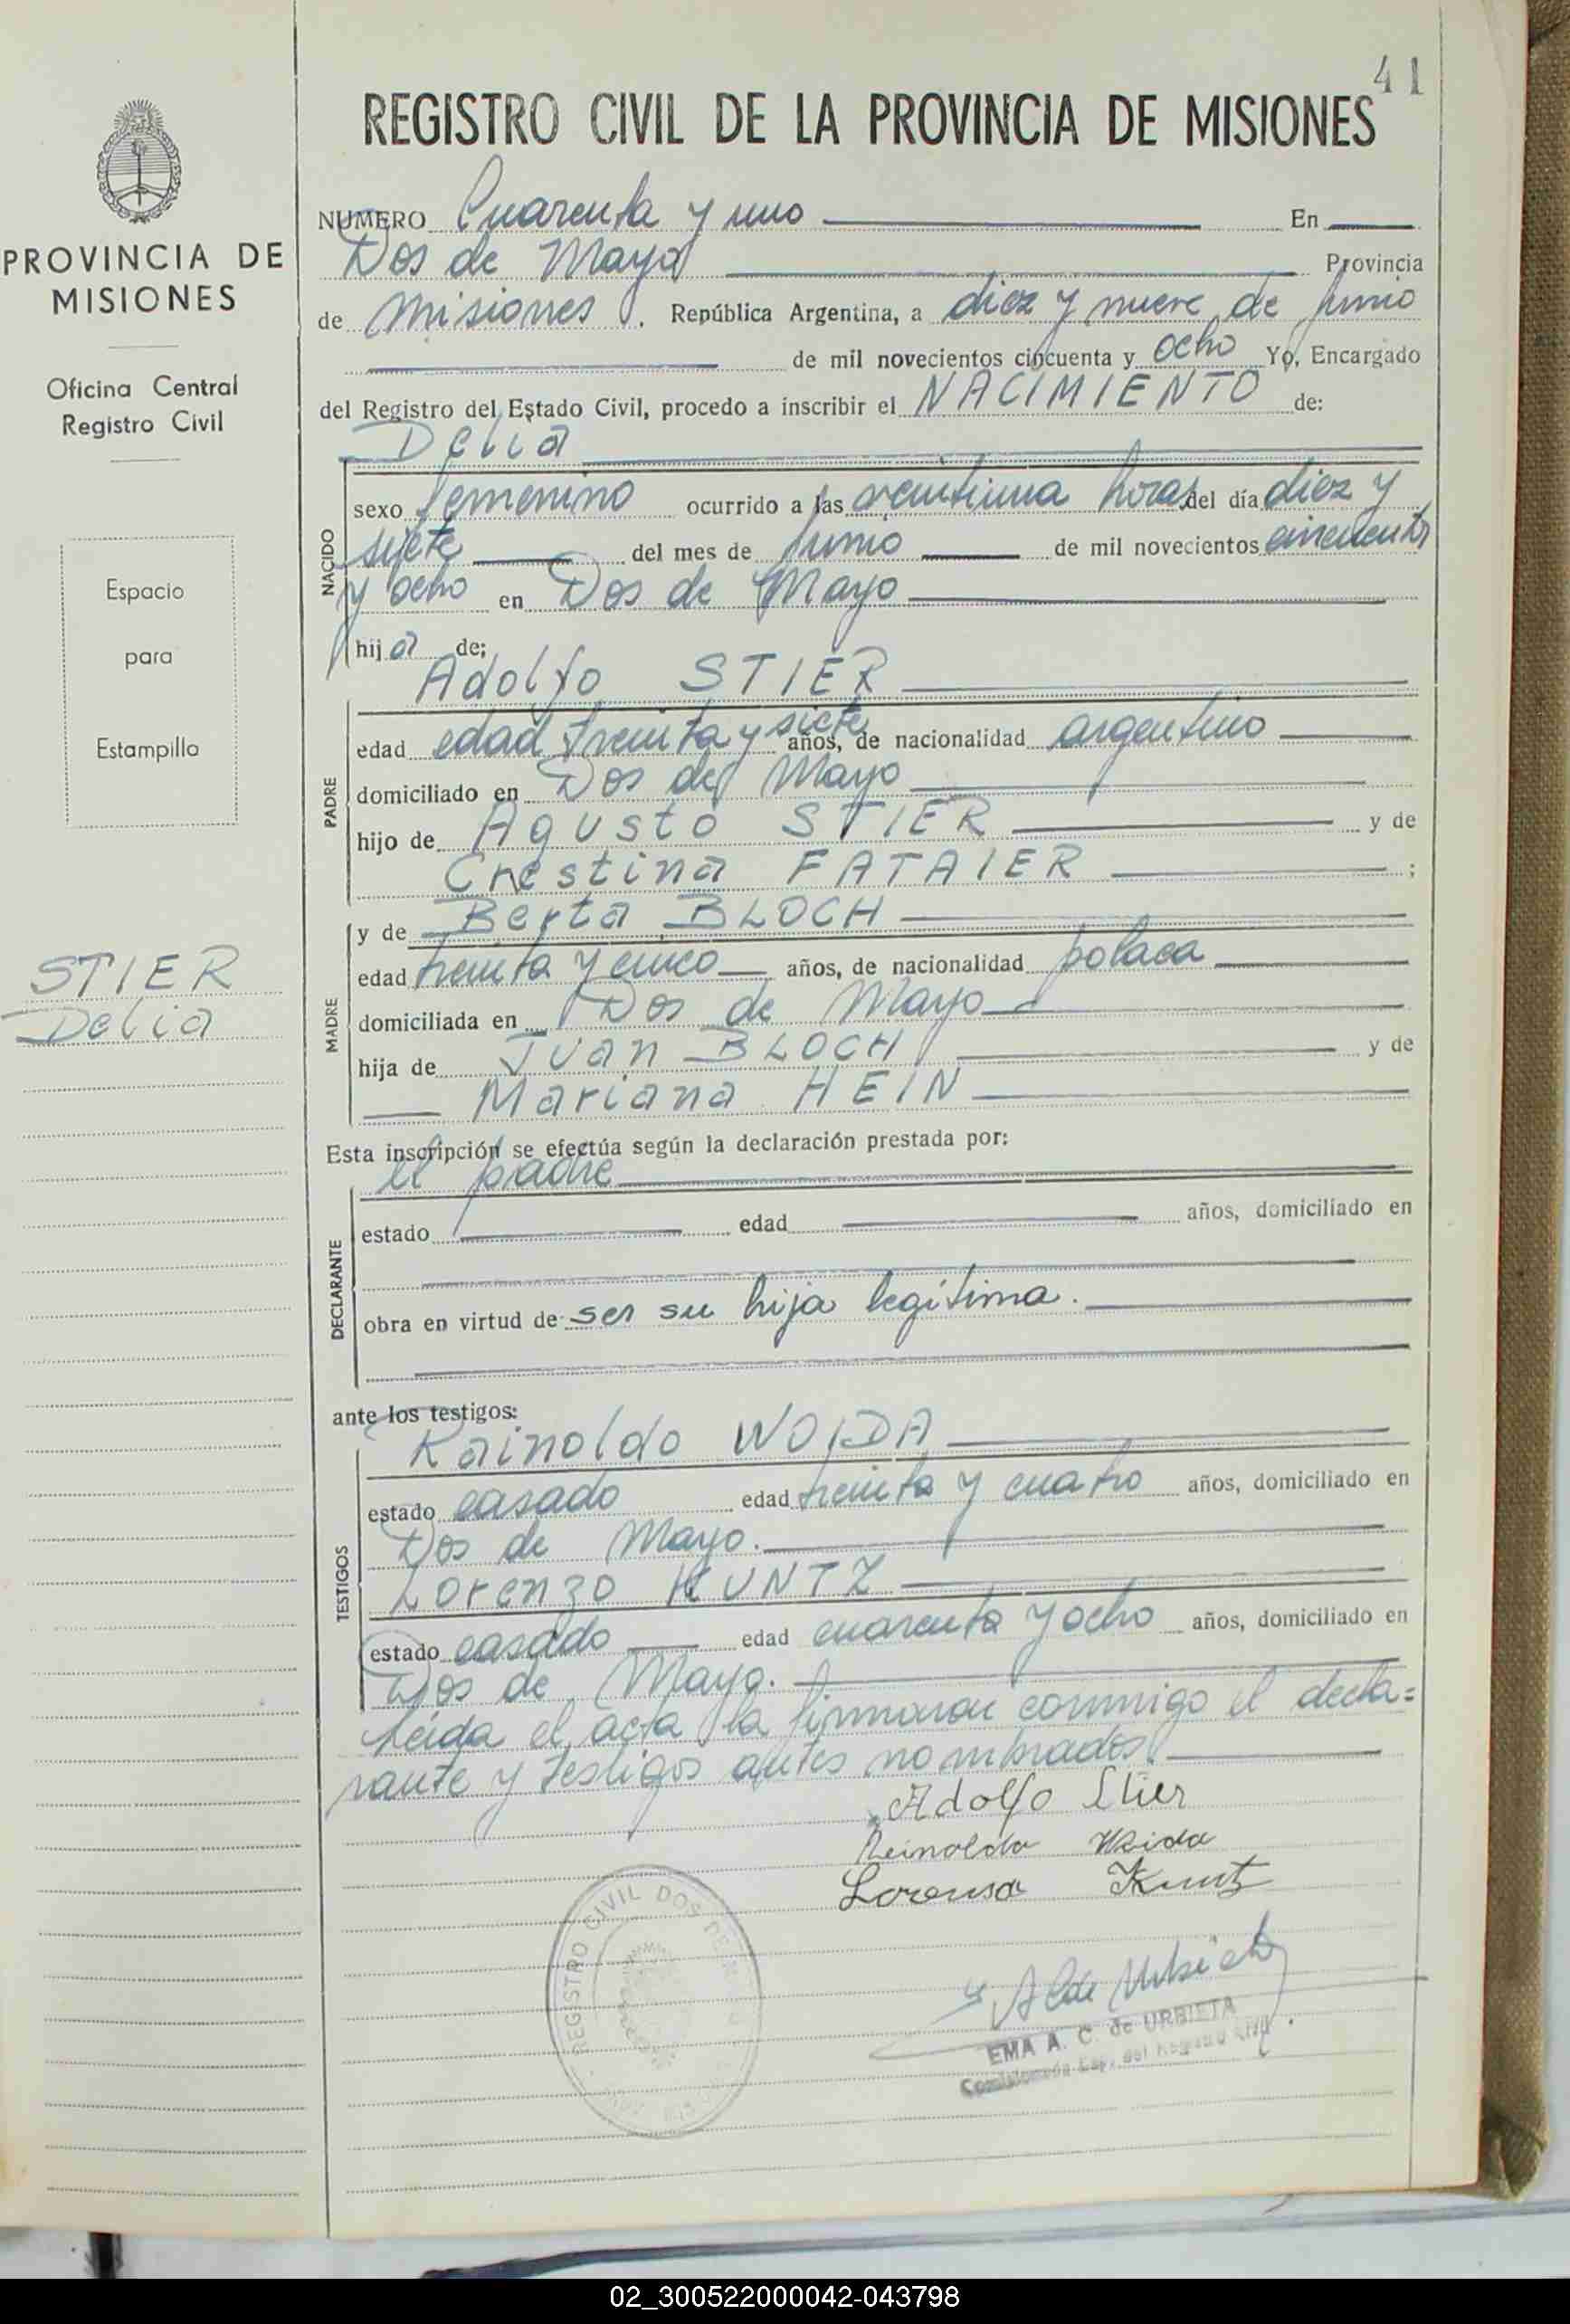 41
REGISTRO CIVIL DE LA PROVINCIA DE MISIONES
PROVINCIA DE
MISIONES
Oficina Central
Registro Civil
Espacio
para
Estampilla
STIER
Delia
NUMERO Cuarenta y uno En
Dos de Mayo Provincia
de Misiones, República Argentina, a diez y nueve de Junio
de mil novecientos cincuenta y ocho Yo, Encargado
del Registro del Estado Civil, procedo a inscribir el NACIMIENTO de:
Delia
NACIDO
sexo femenino ocurrido a las veintiuna horas del día diez y
siete del mes de Junio de mil novecientos cincuenta
y ocho en Dos de Mayo
hija de;
Adolfo STIER
PADRE
edad edad treinta y siete años, de nacionalidad argentino
domiciliado en Dos de Mayo
hijo de Agusto STIER y de
Crestina FATAIER ;
y de Berta BLOCH
MADRE
edad treinta y cinco años, de nacionalidad polaca
domiciliada en Dos de Mayo
hija de Juan BLOCH y de
Mariana HEIN
Esta inscripción se efectúa según la declaración prestada por:
el padre
DECLARANTE
estado edad años, domiciliado en
obra en virtud de ser su hija legítima.
ante los testigos:
Rainoldo WOIDA
TESTIGOS
estado casado edad treinta y cuatro años, domiciliado en
Dos de Mayo.
Lorenzo KUNTZ
estado casado edad cuarenta y ocho años, domiciliado en
Dos de Mayo.
Leida el acta la firmaron conmigo el decla=
rante y testigos antes nombrados.
Adolfo Stier
Reinoldo Woida
Lorensa Kuntz
REGISTRO CIVIL DOS DE M
EMA A. C. de URBIETA
Esp. del Registro Civil
02_300522000042-043798